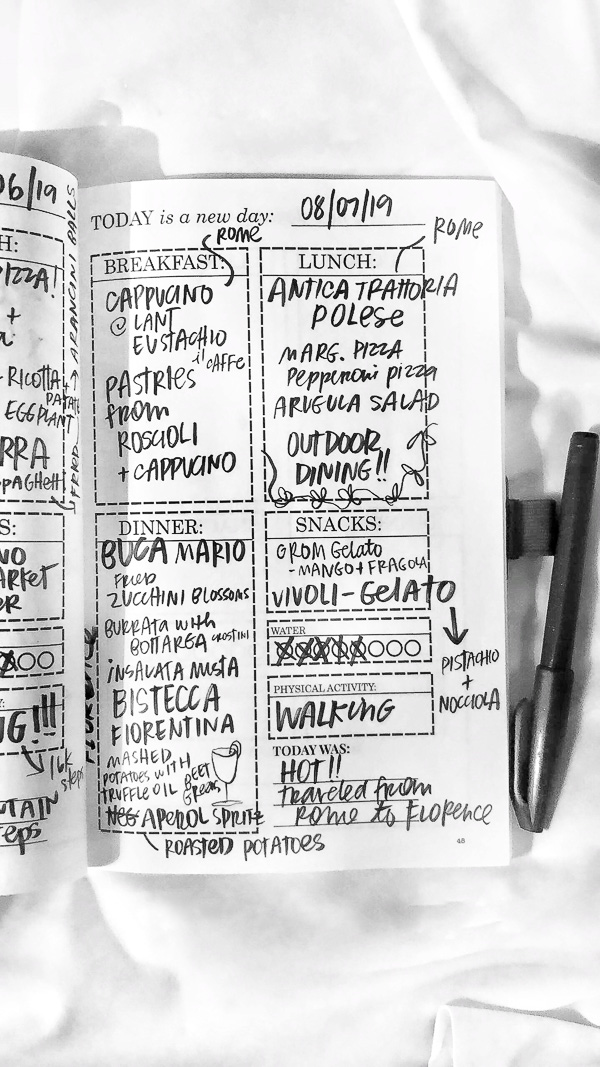 06/19
H:
PIZZA!
+
RICOTTA
EGGPLANT
ARANCINI BALLS
FRIED
PAGHETTI
S:
NO
ARKET
ER
G!!!
16K
steps
TAIN
teps
TODAY is a new day: 08/07/19
ROME
BREAKFAST:
CAPPUCINO
@ SANT
EUSTACHIO
il CAFFE
PASTRIES
from
ROSCIOLI
+ CAPPUCINO
ROME
LUNCH:
ANTICA TRATTORIA
POLESE
MARG. PIZZA
Pepperoni pizza
ARUGULA SALAD
OUTDOOR
DINING!!
FLORENCE
DINNER:
BUCA MARIO
FRIED
ZUCCHINI BLOSSOMS
BURRATA with
BOTTARGA CROSTINI
INSALATA MISTA
BISTECCA
FIORENTINA
MASHED
POTATOES WITH
TRUFFLE OIL
BEET
GREENS
APEROL SPRITZ
ROASTED POTATOES
SNACKS:
GROM Gelato
- MANGO + FRAGOLA
VIVOLI - GElATO
PISTACHIO
+
NOCCIOLA
WATER
PHYSICAL ACTIVITY:
WALKING
TODAY WAS:
HOT!!
traveled from
ROME to FLORENCE
48